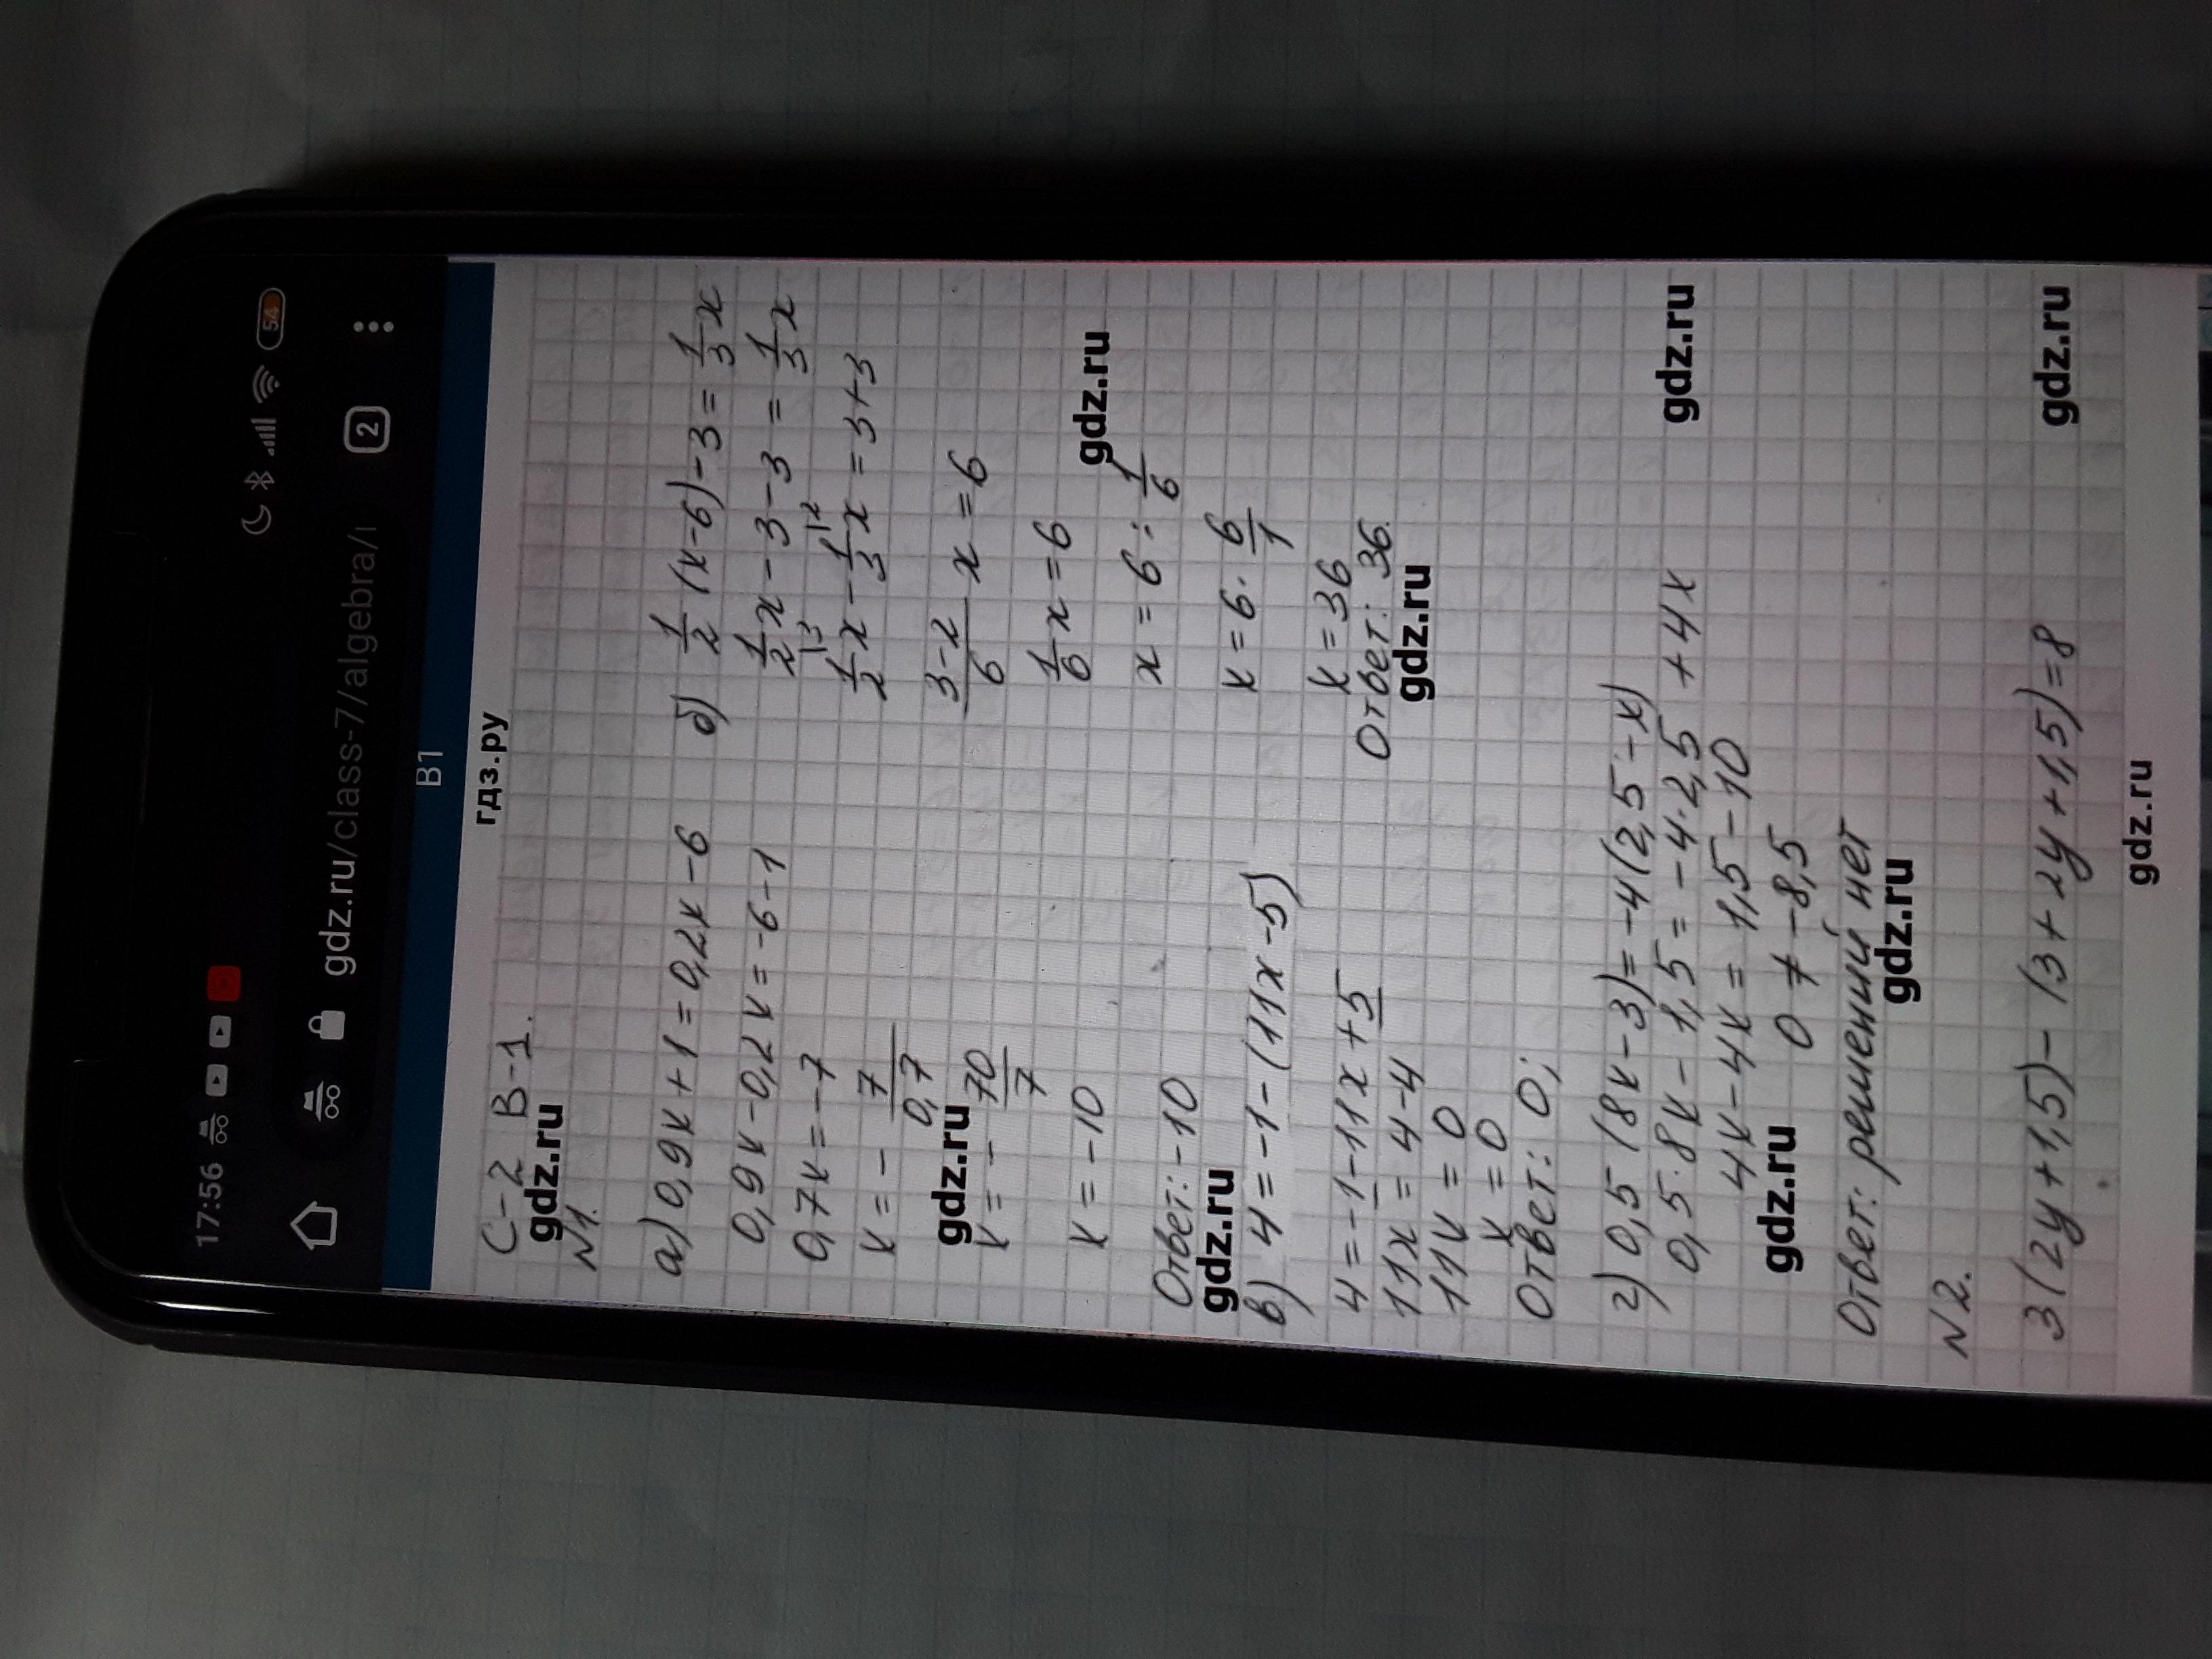 17:56
54
gdz.ru/class-7/algebra/
2
В1
гдз.ру
С-2 В-1.
gdz.ru
N1.
а) 0,9x + 1 = 0,2x - 6
0,9x - 0,2x = -6 - 1
0,7x = -7
x = - 7/0,7
gdz.ru
x = - 70/7
x = -10
Ответ: -10
gdz.ru
б) 1/2 (x-6) - 3 = 1/3 x
1/2 x - 3 - 3 = 1/3 x
1/2 |3 x - 1/3 |2 x = 3 + 3
3-2/6 x = 6
1/6 x = 6
gdz.ru
x = 6 : 1/6
x = 6 · 6/1
x = 36
Ответ: 36.
gdz.ru
в) 4 = -1 - (11x - 5)
4 = -1 - 11x + 5
11x = 4 - 4
11x = 0
x = 0
Ответ: 0;
г) 0,5 (8x - 3) = -4 (2,5 - x)
gdz.ru
0,5 · 8x - 1,5 = -4 · 2,5 + 4x
4x - 4x = 1,5 - 10
gdz.ru
0 ≠ -8,5
Ответ: решений нет
gdz.ru
N2.
3 (2y + 1,5) - (3 + 2y + 1,5) = 8
gdz.ru
gdz.ru